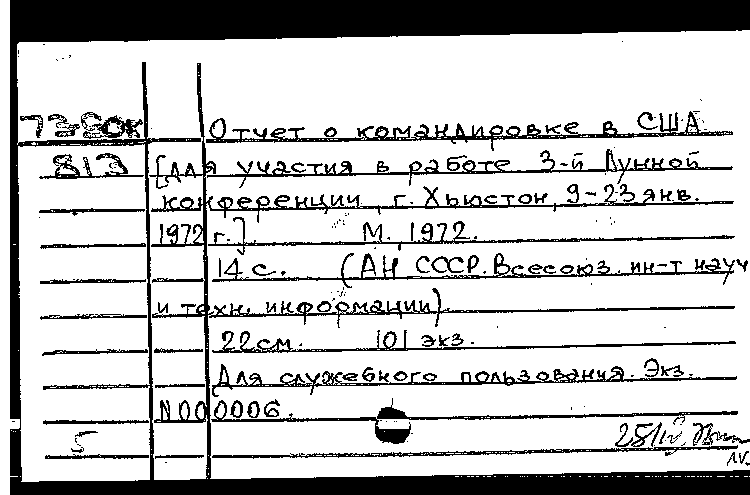 Отчет о командировке в США
813 [для участия в работе 3-й Лунной
конференции, г. Хьюстон, 9-23 янв.
1972 г.]. М., 1972.
14 с. (АН СССР. Всесоюз. ин-т науч
и техн. информации).
22 см. 101 экз.
Для служебного пользования. Экз.
N000006.
5